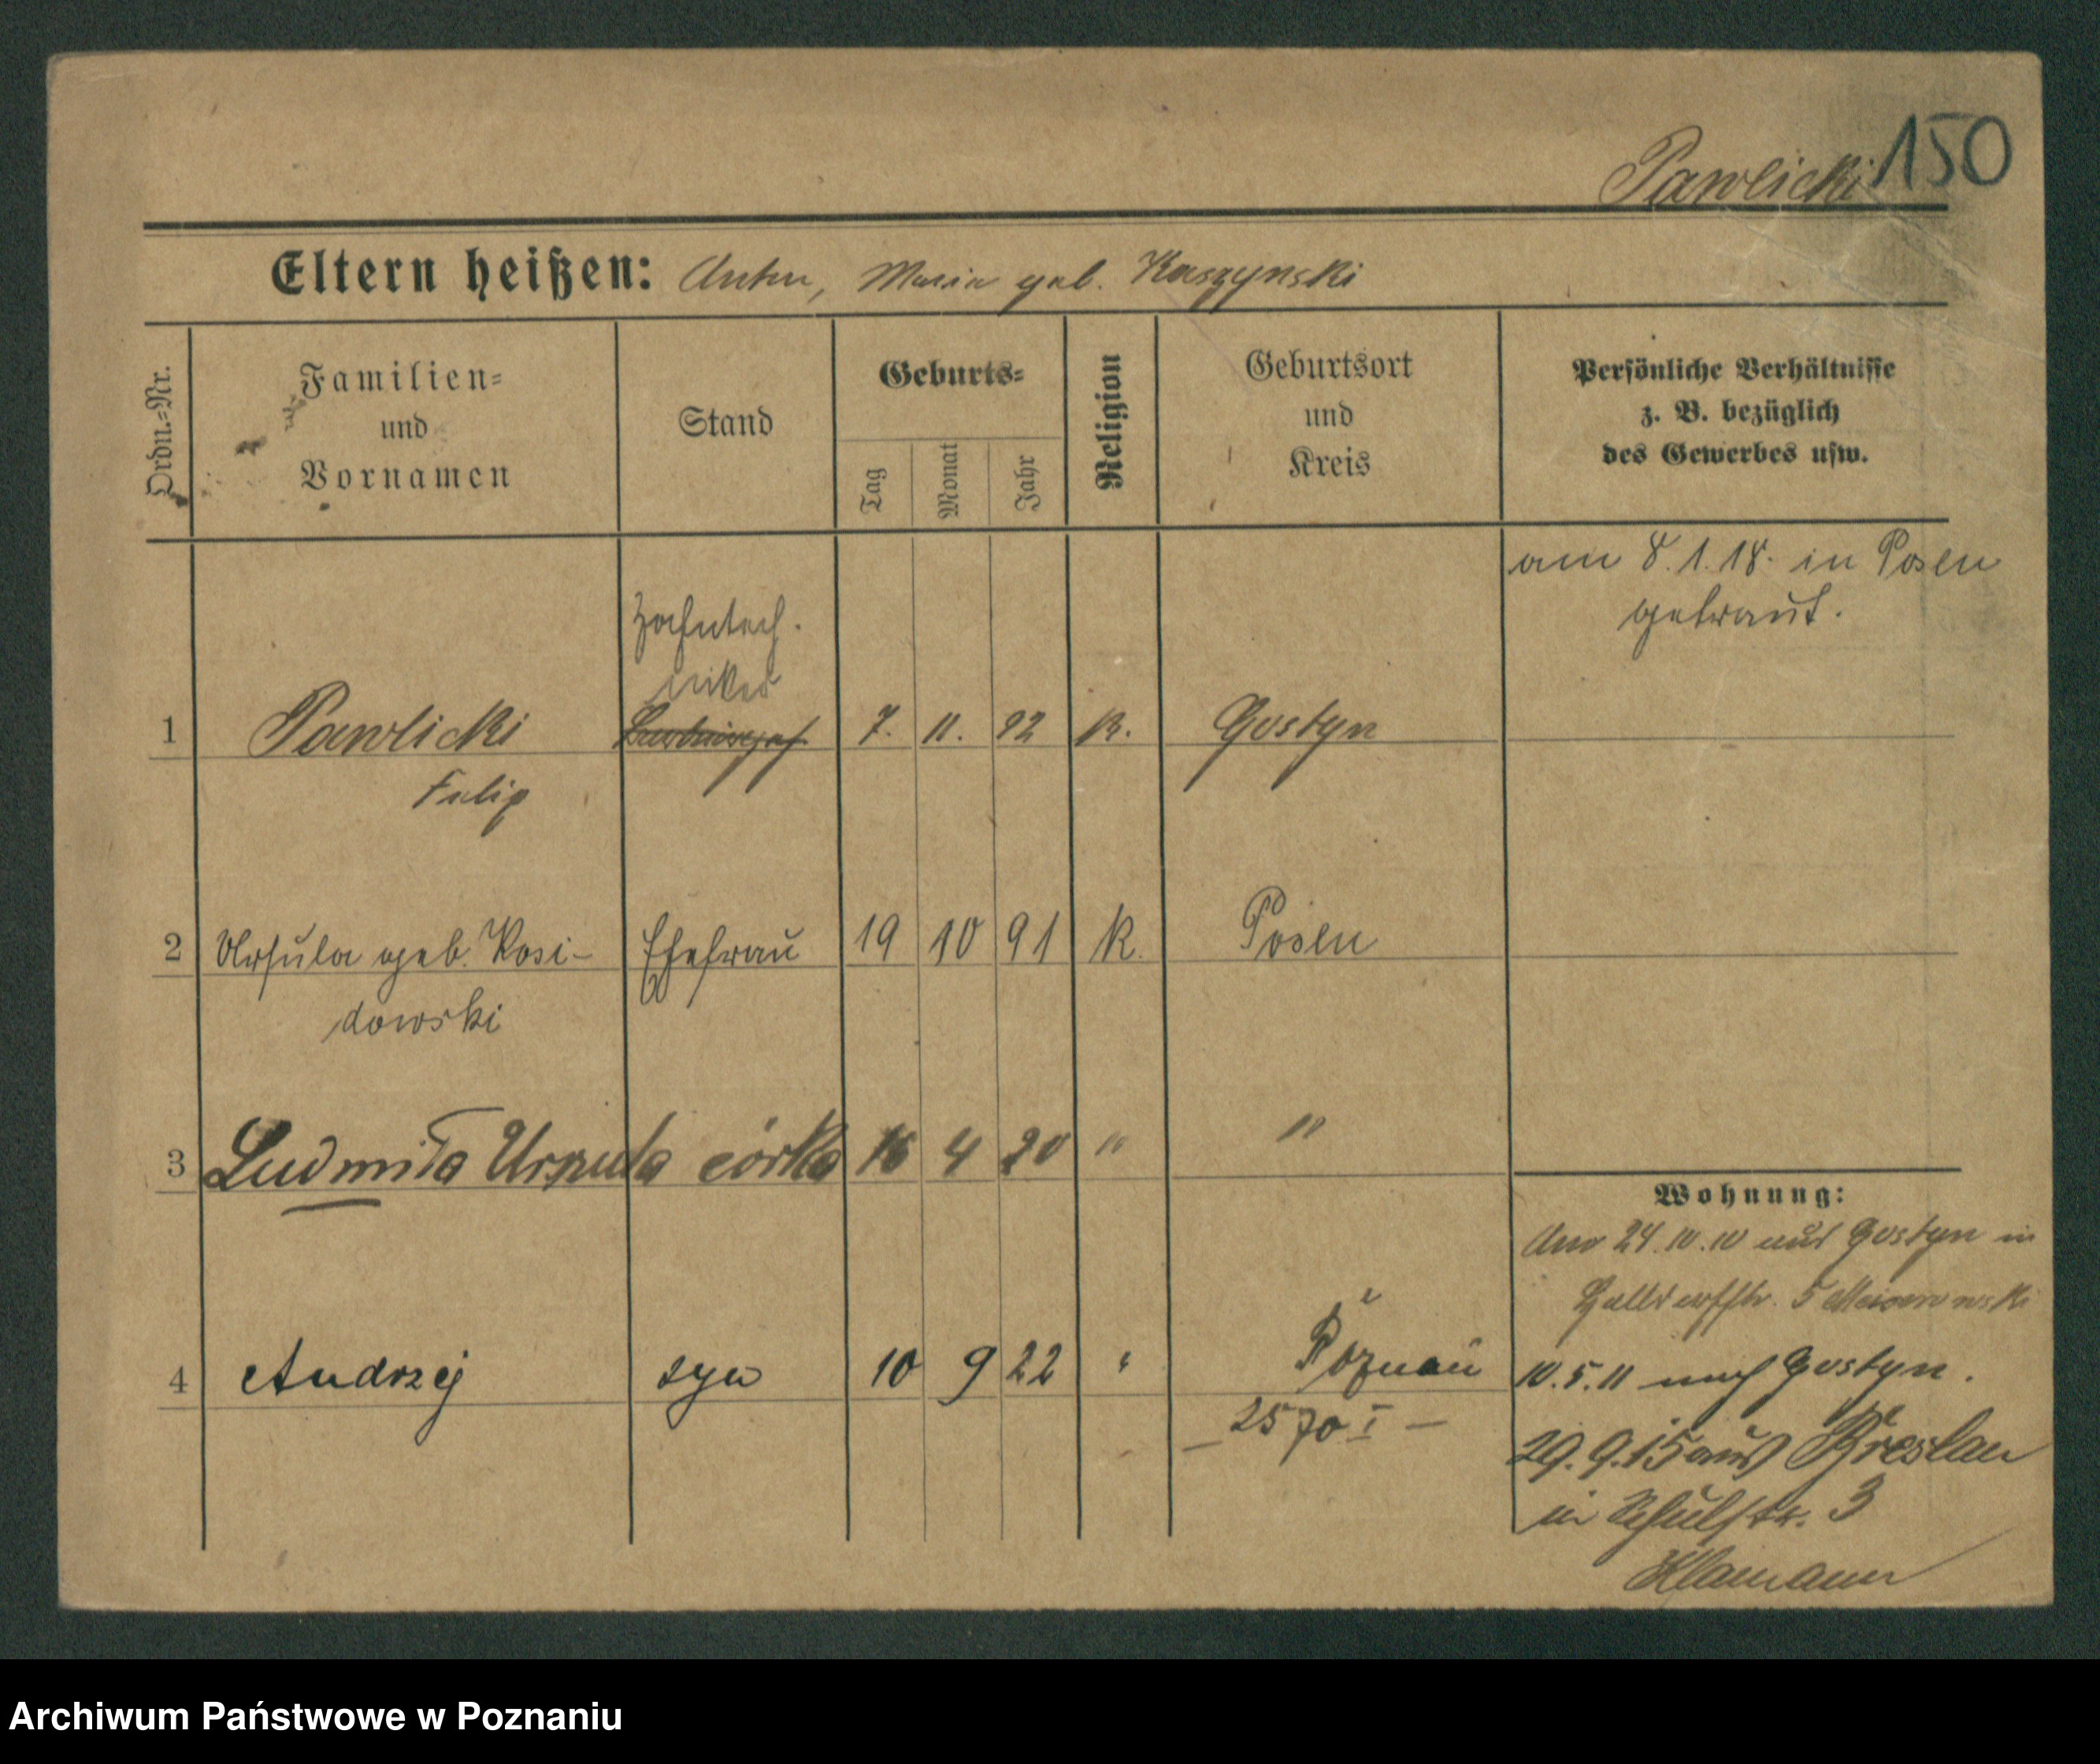 150
Pawlicki
Eltern heißen: Anton, Maria geb. Kaszynski
Ordn.=Nr.
Familien=
und
Vornamen
Stand
Geburts=
Tag
Monat
Jahr
Religion
Geburtsort
und
Kreis
Persönliche Verhältnisse
z. B. bezüglich
des Gewerbes usw.
am 8.1.18. in Posen
getraut.
Zahntech.
niker
1 Pawlicki 7. 11. 92 K. Gostyn
2 Ursula geb. Rosi- Ehefrau 19 10 91 K. Posen
dowski
3 Ludmiła Urszula córka 16 4 20 " "
Wohnung:
24.10.10 aus Gostyn in
5
4 Andrzej syn 10 9 22 " Poznań
10.5.11 nach Gostyn.
2570 I –
29.9.15 aus Breslau
in Schulstr. 3
Archiwum Państwowe w Poznaniu